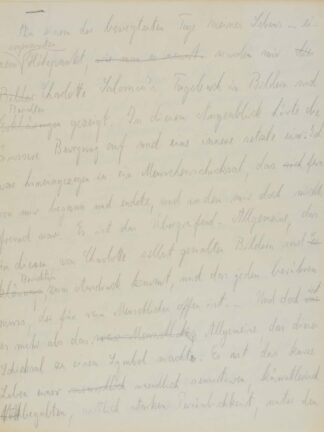 An einem der bewegtesten Tage meines Lebens – ei-
nem Höhepunkt, wurden mir die
Charlotte Salomon's Tagebuch in Bildern und
gezeigt. In diesem Augenblick hörte die
äussere Bewegung auf und eine innere setzte ein: Ich
war hineingezogen in ein Menschenschicksal, das
vor mir begann und endete, und indem mir doch nichts
fremd war. Es ist das Allgemeine, das
in diesen von Charlotte selbst gemalten Bildern und
zum Ausdruck kommt, und das jeden berühren
muss, der für rein Menschliches offen ist. – Und doch ist
es mehr als das Allgemeine, das dieses
Schicksal zu einem Symbol macht. Es ist das kurze
Leben einer unendlich sensitiven, künstlerisch
begabten, sittlich starken Persönlichkeit, unter den